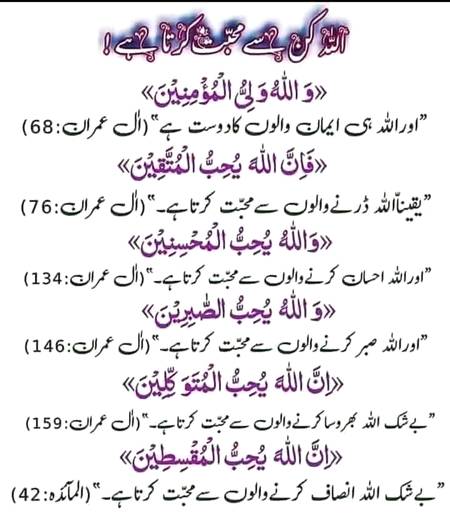 اللہ کن سے محبت کرتا ہے !
«وَ اللّٰهُ وَلِیُّ الْمُؤْمِنِیْنَ»
”اور اللہ ہی ایمان والوں کا دوست ہے“ (اٰل عمران:68)
«فَاِنَّ اللّٰهَ یُحِبُّ الْمُتَّقِیْنَ»
”یقیناً اللہ ڈرنے والوں سے محبّت کرتا ہے۔“ (اٰل عمران:76)
«وَاللّٰهُ یُحِبُّ الْمُحْسِنِیْنَ»
”اور اللہ احسان کرنے والوں سے محبّت کرتا ہے۔“ (اٰل عمران:134)
«وَ اللّٰهُ یُحِبُّ الصّٰبِرِیْنَ»
”اور اللہ صبر کرنے والوں سے محبّت کرتا ہے۔“ (اٰل عمران:146)
«اِنَّ اللّٰهَ یُحِبُّ الْمُتَوَكِّلِیْنَ»
”بے شک اللہ بھروسا کرنے والوں سے محبّت کرتا ہے۔“ (اٰل عمران:159)
«اِنَّ اللّٰهَ یُحِبُّ الْمُقْسِطِیْنَ»
”بے شک اللہ انصاف کرنے والوں سے محبّت کرتا ہے۔“ (المآئدہ:42)